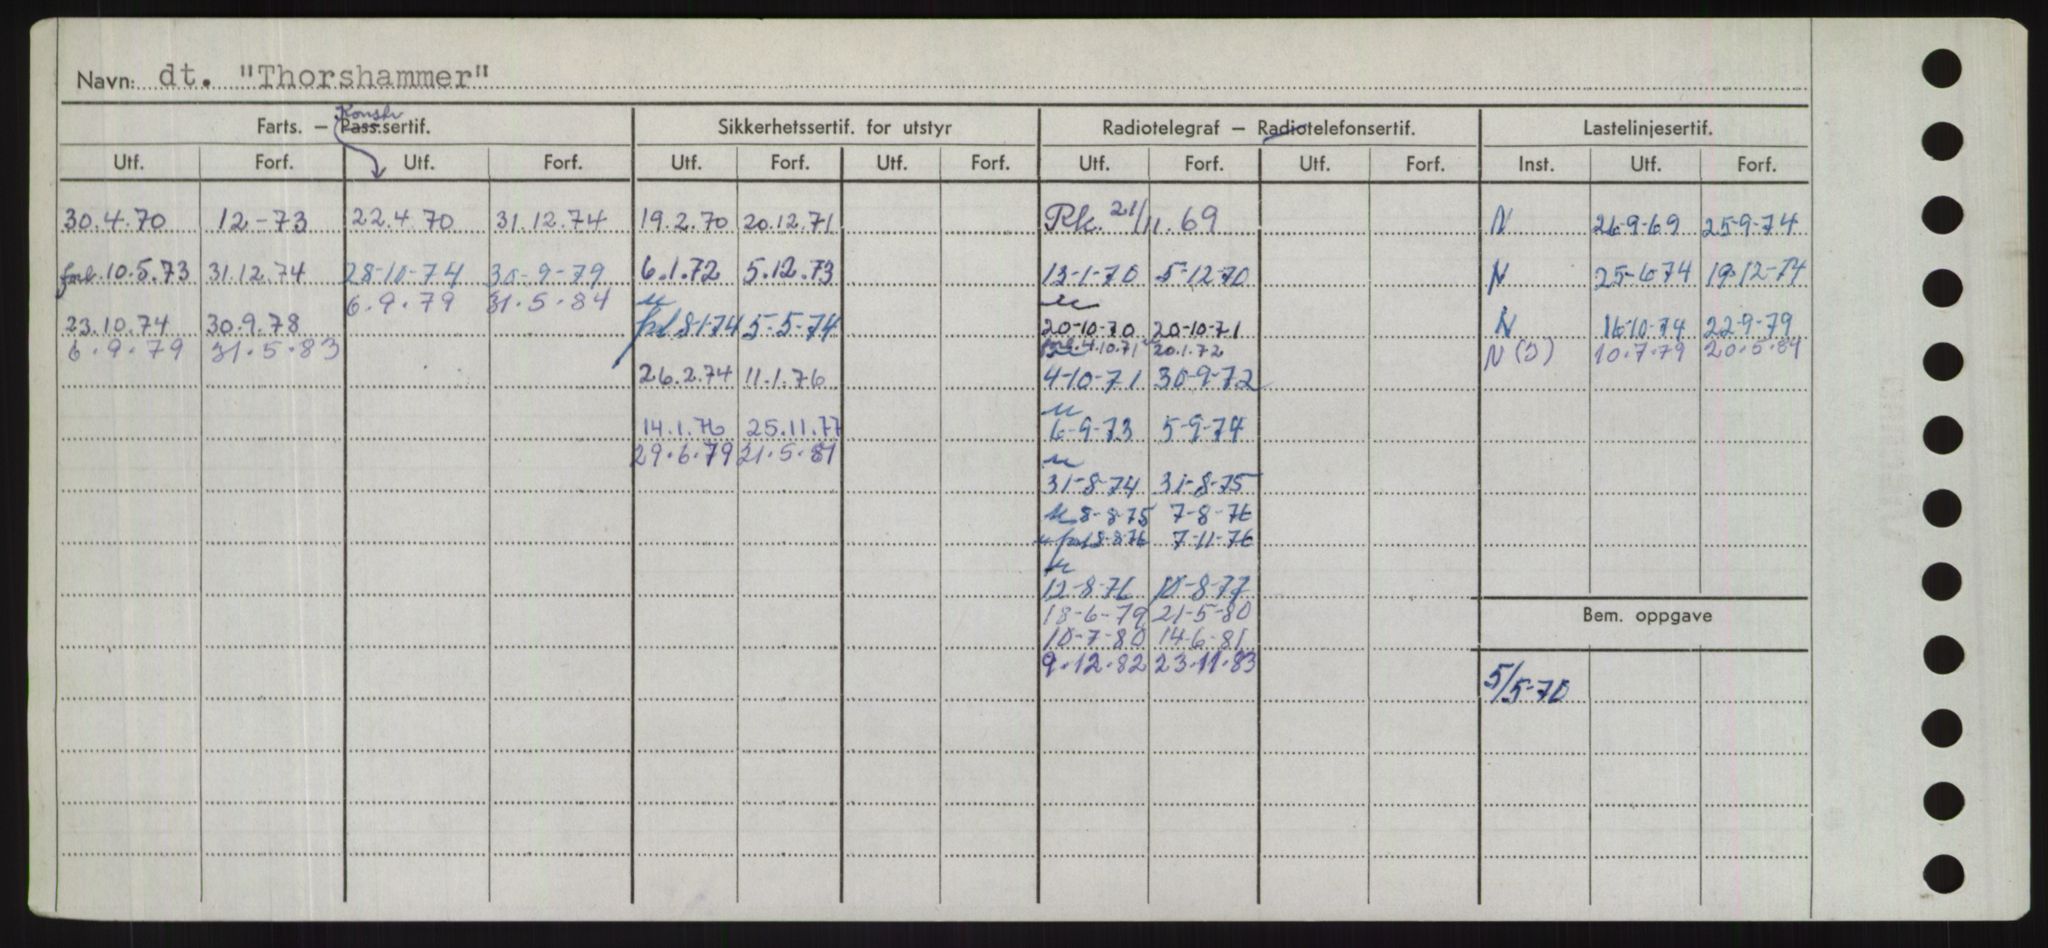 Navn: dt. "Thorshammer"
Konstr
Farts. — Pass.sertif. Sikkerhetssertif. for utstyr Radiotelegraf — Radiotelefonsertif. Lastelinjesertif.
Utf. Forf. Utf. Forf. Utf. Forf. Utf. Forf. Utf. Forf. Utf. Forf. Inst. Utf. Forf.
30.4.70 12-73 22.4.70 31.12.74 19.2.70 20.12.71 Rk. 21/11.69 N 26-9-69 25-9-74
forl. 10.5.73 31.12.74 28-10-74 30-9-79 6.1.72 5.12.73 13-1-70 5-12-70 N 25-6-74 19-12-74
6.9.79 31.5.84
23.10.74 30.9.78 forl 8-1-74 5-5-74 20-10-70 20-10-71 N 16-10-74 22-9-79
6.9.79 31.5.83 forl. 4.10.71 20.1.72 N (S) 10.7.79 20.5.84
26.2.74 11.1.76 4-10-71 30-9-72
14.1.76 25.11.77 6-9-73 5-9-74
29.6.79 21.5.81
31-8-74 31-8-75
8-8-75 7-8-76
forl 8-8-76 7-11-76
12-8-76 10-8-77
18-6-79 21-5-80
Bem. oppgave
10-7-80 14-6-81
9.12.82 23.11.83
5/5-70